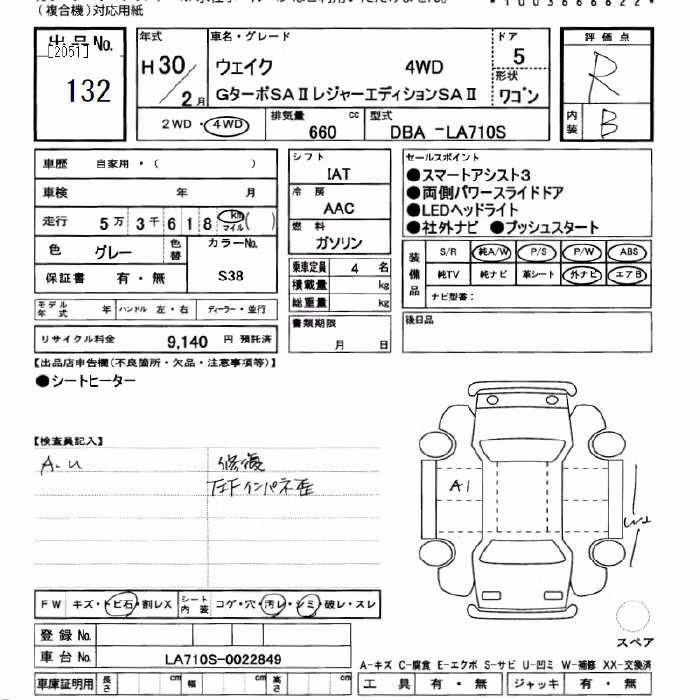 (複合機)対応用紙
*1003666622*
出品No.
[2051]
132
年式
H30/2月
車名・グレード
ウェイク 4WD
GターボSAⅡレジャーエディションSAⅡ
ドア
5
形状
ワゴン
評価点
R
内装
B
2WD・4WD
排気量 660 cc
型式 DBA -LA710S
車歴 自家用・( )
車検 年 月
走行 5万3千618 km マイル ( )
色 グレー 色替
カラーNo. S38
保証書 有・無
モデル年式 年 ハンドル 左・右 ディーラー・並行
リサイクル料金 9,140 円 預託済
シフト
IAT
冷房
AAC
燃料
ガソリン
乗車定員 4 名
積載量 kg
総重量 kg
書類期限
月 日
セールスポイント
●スマートアシスト3
●両側パワースライドドア
●LEDヘッドライト
●社外ナビ ●プッシュスタート
装備品
S/R 純A/W P/S P/W ABS
純TV 純ナビ 革シート 外ナビ エアB
ナビ型番:
後日品
【出品店申告欄(不良箇所・欠品・注意事項等)】
●シートヒーター
【検査員記入】
A-u
修復
左Fインパネ歪
A1
W2
FW キズ・トビ石・割レX
シート内装 コゲ・穴・汚レ・シミ・破レ・スレ
登録No.
車台No. LA710S-0022849
車庫証明用 長さ cm 幅 cm 高さ cm
スペア
A-キズ C-腐食 E-エクボ S-サビ U-凹ミ W-補修 XX-交換済
工具 有・無 ジャッキ 有・無